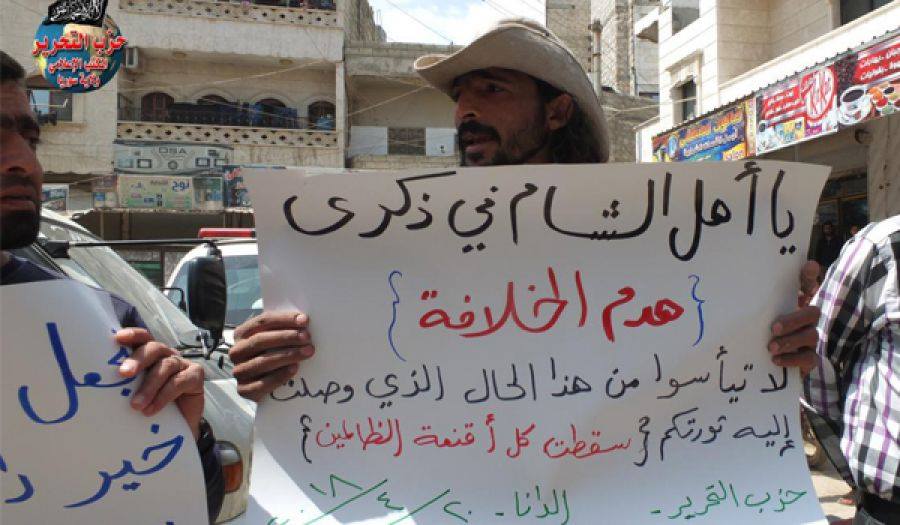 حزب التحرير
المكتب الإعلامي
ولاية سوريا
يا أهل الشام في ذكرى
{هدم الخلافة}
لا تيأسوا من هذا الحال الذي وصلت
إليه ثورتكم {سقطت كل أقنعة الظالمين}
حزب التحرير - الدانا - ٢٠/٤/٢٠١٨
نجعل
خير
DSA
نوح